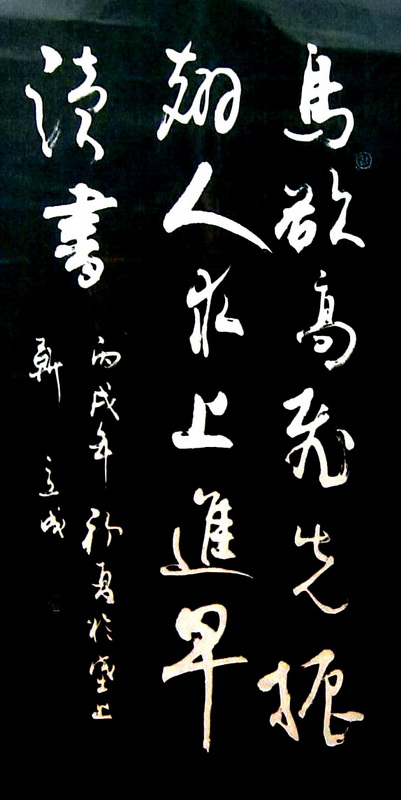 鳥欲高飛先振
翅人求上進早
讀書
丙戌年初夏於上
軒立成